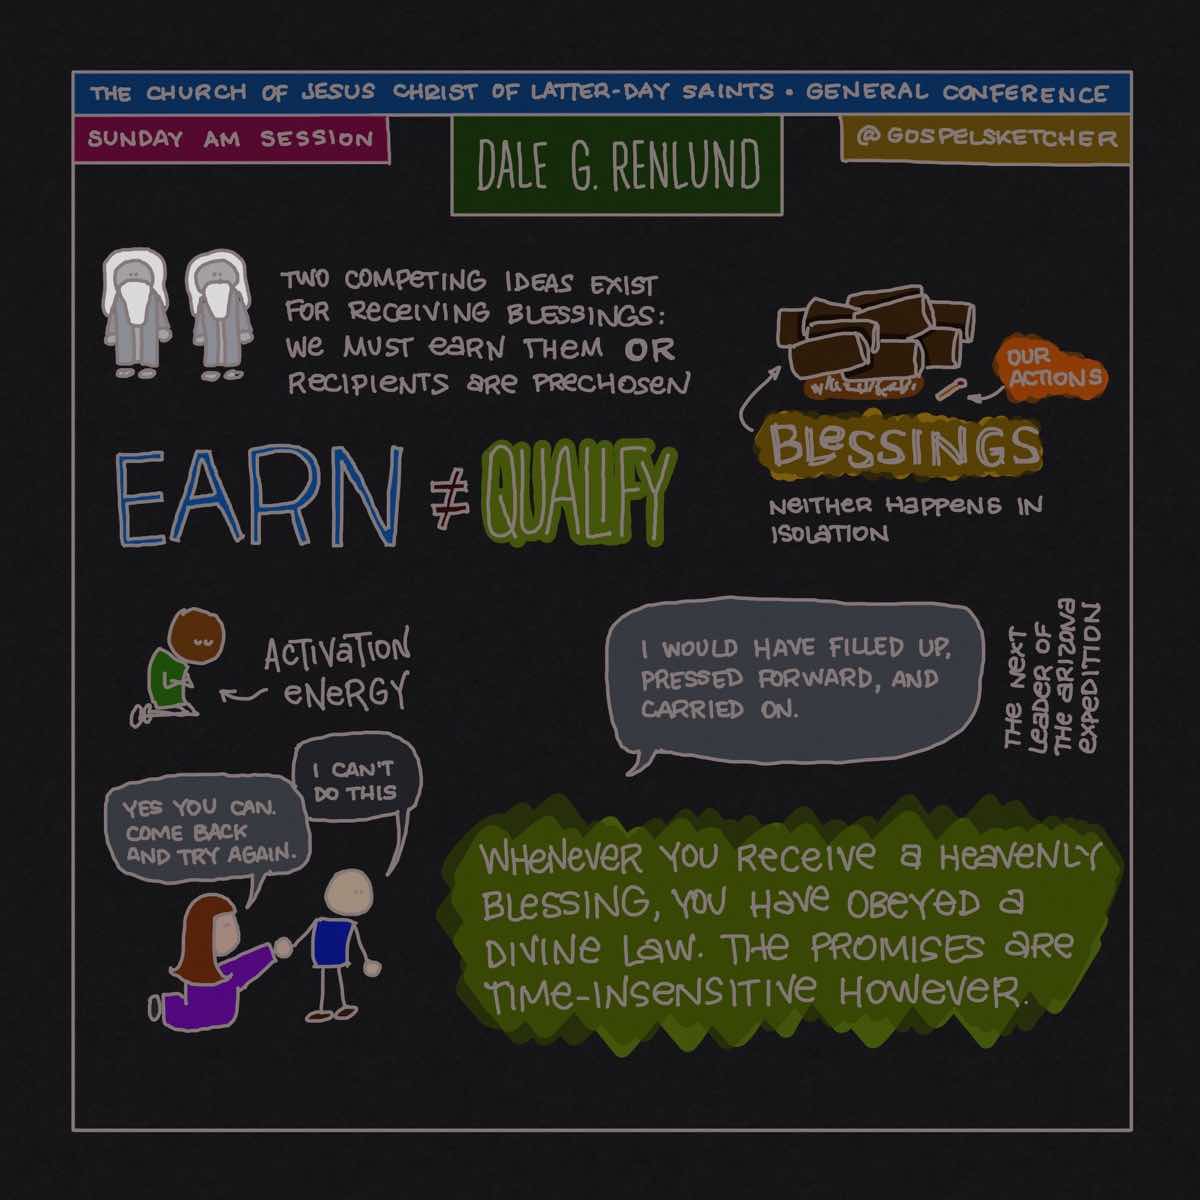 THE CHURCH OF JESUS CHRIST OF LATTER-DAY SAINTS • GENERAL CONFERENCE
SUNDAY AM SESSION
DALE G. RENLUND
@GOSPELSKETCHER
TWO COMPETING IDEAS EXIST
FOR RECEIVING BLESSINGS:
WE MUST EARN THEM OR
RECIPIENTS ARE PRECHOSEN
OUR
ACTIONS
BLESSINGS
NEITHER HAPPENS IN
ISOLATION
EARN ≠ QUALIFY
ACTIVATION
ENERGY
I WOULD HAVE FILLED UP,
PRESSED FORWARD, AND
CARRIED ON.
THE NEXT
LEADER OF
THE ARIZONA
EXPEDITION
I CAN'T
DO THIS
YES YOU CAN.
COME BACK
AND TRY AGAIN.
WHENEVER YOU RECEIVE A HEAVENLY
BLESSING, YOU HAVE OBEYED A
DIVINE LAW. THE PROMISES ARE
TIME-INSENSITIVE HOWEVER.